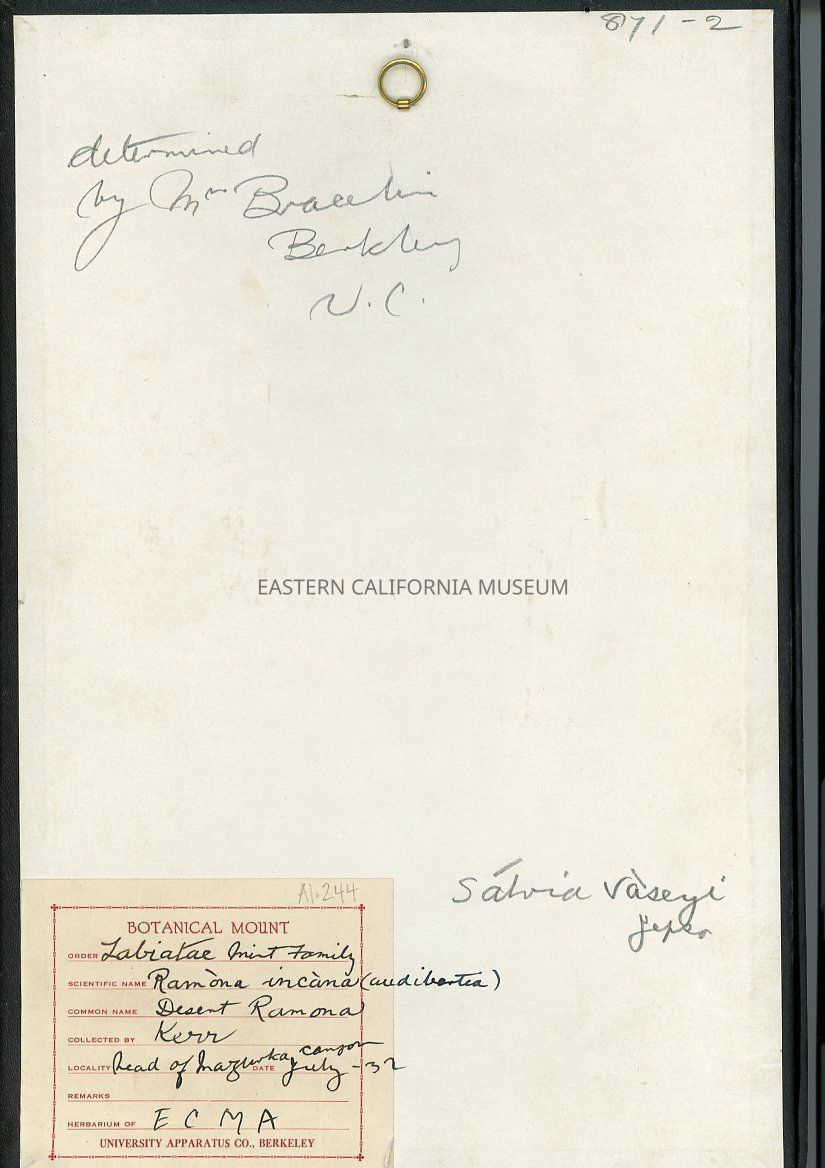 871-2
determined
by Mrs Bracelin
Berkley
U.C.
EASTERN CALIFORNIA MUSEUM
Sálvia Vàseyi
Jeps.
A1.244
BOTANICAL MOUNT
ORDER Labiatae Mint Family
SCIENTIFIC NAME Ramòna incàna (audibertia)
COMMON NAME Desert Ramona
COLLECTED BY Kerr
LOCALITY head of Mazurka canyon DATE July -32
REMARKS
HERBARIUM OF E C M A
UNIVERSITY APPARATUS CO., BERKELEY